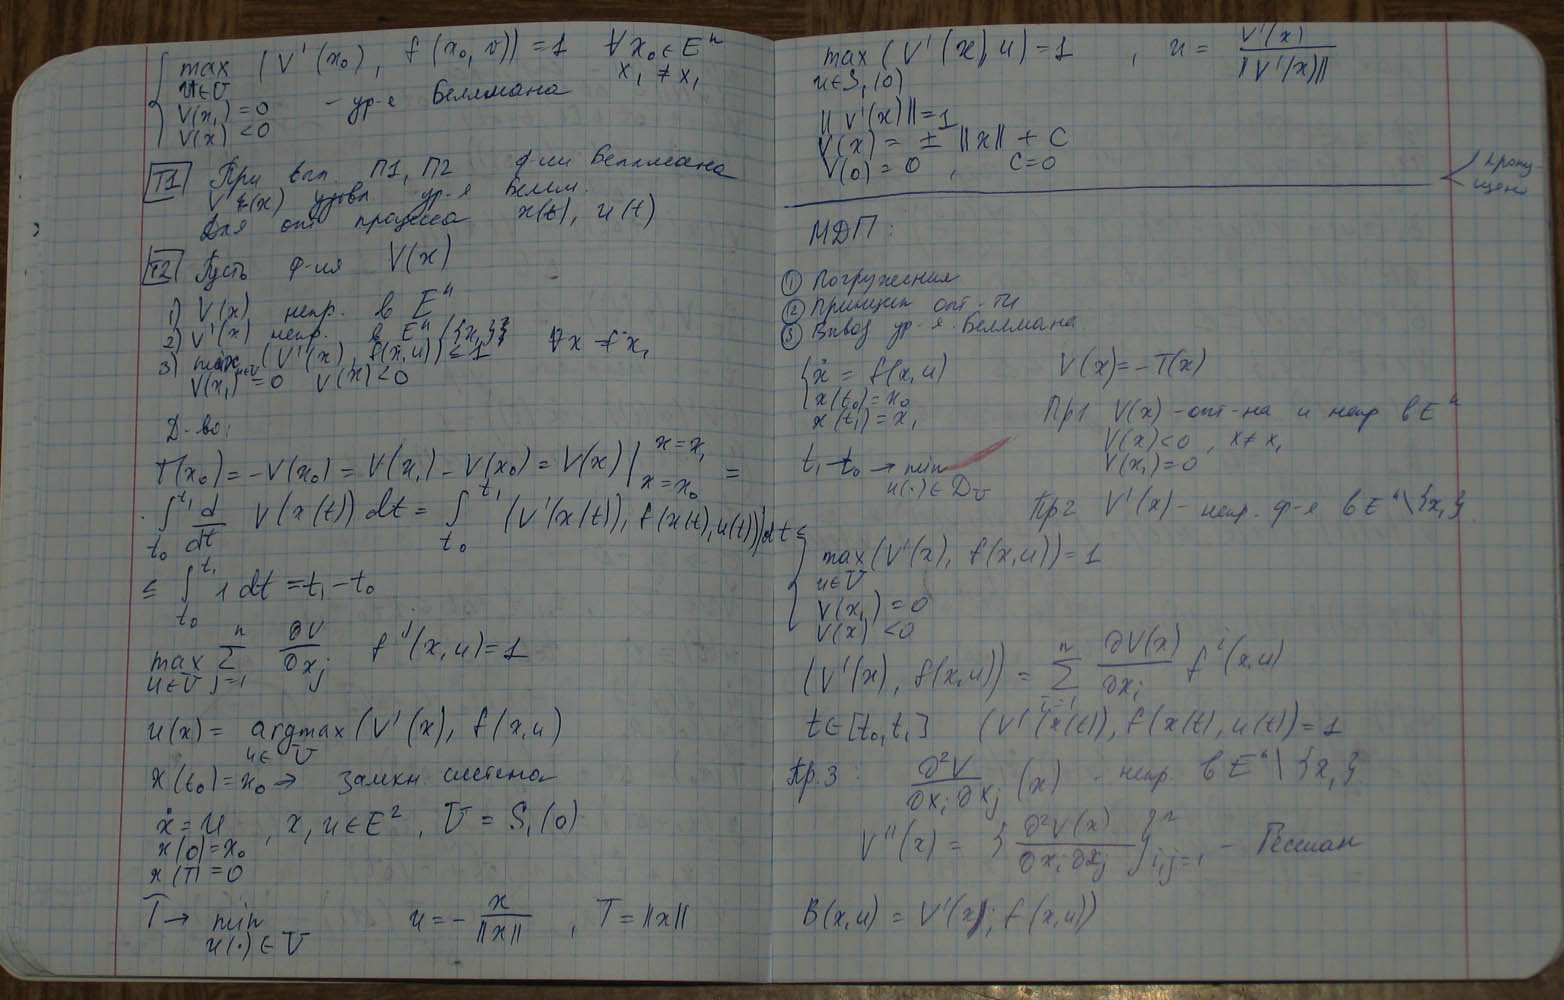 max (V'(x₀), f(x₀, v)) = 1 ∀ x₀ ∈ Eⁿ
u∈U x₁ ≠ x₁
V(x₁) = 0 - ур-е Беллмана
V(x) < 0
T1 При вып. П1, П2 ф-ии Беллмана
V(x) удовл ур-я Беллм.
Для опт процесса x(t), u(t)
T2 Пусть ф-ия V(x)
1) V(x) непр. в Eⁿ
2) V'(x) непр. в Eⁿ\{x₁}
3) max (V'(x), f(x,u)) ≤ 1 ∀x ≠ x₁
u∈U
V(x₁) = 0 V(x) < 0
Д-во:
T(x₀) = -V(x₀) = V(x₁) - V(x₀) = V(x) |ₓ₌ₓ₀ˣ⁼ˣ¹ =
∫ₜ₀ᵗ¹ d/dt V(x(t)) dt = ∫ₜ₀ᵗ¹ (V'(x(t)), f(x(t), u(t))) dt ≤
≤ ∫ₜ₀ᵗ¹ 1 dt = t₁ - t₀
max Σⱼ₌₁ⁿ ∂V/∂xⱼ fʲ(x,u) = 1
u∈U
u(x) = argmax (V'(x), f(x,u)
u∈U
x(t₀) = x₀ → замкн. система
ẋ = u , x, u ∈ E² , U = S₁(0)
x(0) = x₀
x(T) = 0
T → min u = - x/||x|| , T = ||x||
u(·) ∈ U
max (V'(x), u) = 1 , u = V'(x)/||V'(x)||
u∈S₁(0)
||V'(x)|| = 1
V(x) = ± ||x|| + C
V(0) = 0 , C = 0
пропу-
щено
МДП:
① Погружения
② Принцип опт-ти
③ Вывод ур-я Беллмана
ẋ = f(x,u) V(x) = -T(x)
x(t₀) = x₀
x(t₁) = x₁ Пр1 V(x) - опт-на и непр в Eⁿ
V(x) < 0, x ≠ x₁
t₁ - t₀ → min V(x₁) = 0
u(·) ∈ D_U
Пр2 V'(x) - непр. ф-я в Eⁿ\{x₁}
max (V'(x), f(x,u)) = 1
u∈U
V(x₁) = 0
V(x) < 0
(V'(x), f(x,u)) = Σᵢ₌₁ⁿ ∂V(x)/∂xᵢ fⁱ(x,u)
t ∈ [t₀, t₁] (V'(x(t)), f(x(t), u(t)) = 1
Пр.3 ∂²V/∂xᵢ∂xⱼ (x) - непр. в Eⁿ\{x₁}
V''(x) = {∂²V(x)/∂xᵢ∂xⱼ}ⁿᵢ,ⱼ₌₁ - Гессиан
B(x,u) = V'(x), f(x,u))